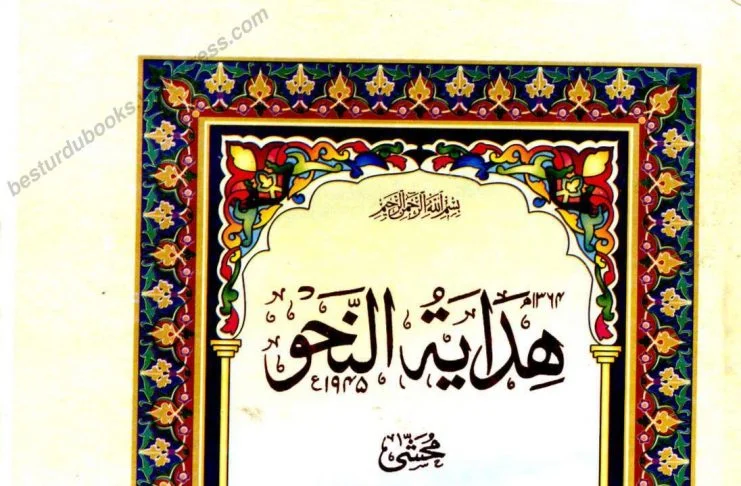 besturdubooks.
ress.com
بسم الله الرحمن الرحيم
۱۳۶۴م
هِدَايَةُ النَّحو
۱۹۴۵ع
مُحَشّٰی